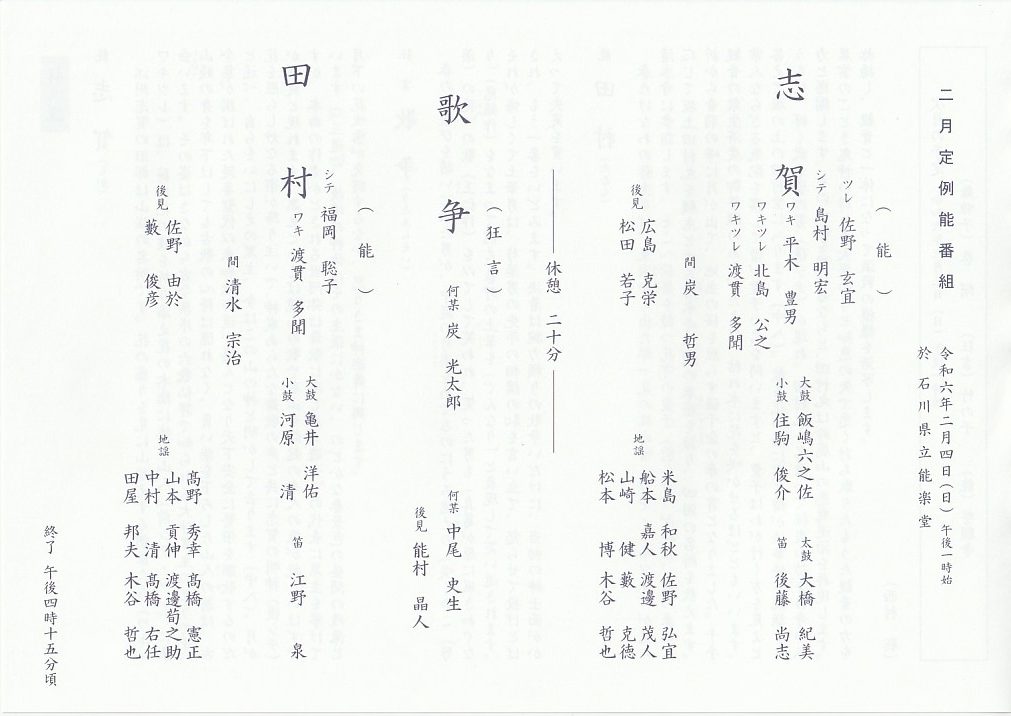 二月定例能番組
令和六年二月四日(日)午後一時始
於 石川県立能楽堂
(能)
志賀
ツレ 佐野 玄宜
シテ 島村 明宏
ワキ 平木 豊男
ワキツレ 北島 公之
ワキツレ 渡貫 多聞
大鼓 飯嶋六之佐
小鼓 住駒 俊介
太鼓 大橋 紀美
笛 後藤 尚志
間 炭 哲男
後見 広島 克栄
松田 若子
地謡
米島 和秋 佐野 弘宜
船本 嘉人 渡邊 茂人
山崎 健 藪 克徳
松本 博 木谷 哲也
休憩 二十分
(狂言)
歌争
何某 炭 光太郎
何某 中尾 史生
後見 能村 晶人
(能)
田村
シテ 福岡 聡子
ワキ 渡貫 多聞
大鼓 亀井 洋佑
小鼓 河原 清
笛 江野 泉
間 清水 宗治
後見 佐野 由於
藪 俊彦
地謡
髙野 秀幸 髙橋 憲正
山本 貢伸 渡邊荀之助
中村 清 髙橋 右任
田屋 邦夫 木谷 哲也
終了 午後四時十五分頃